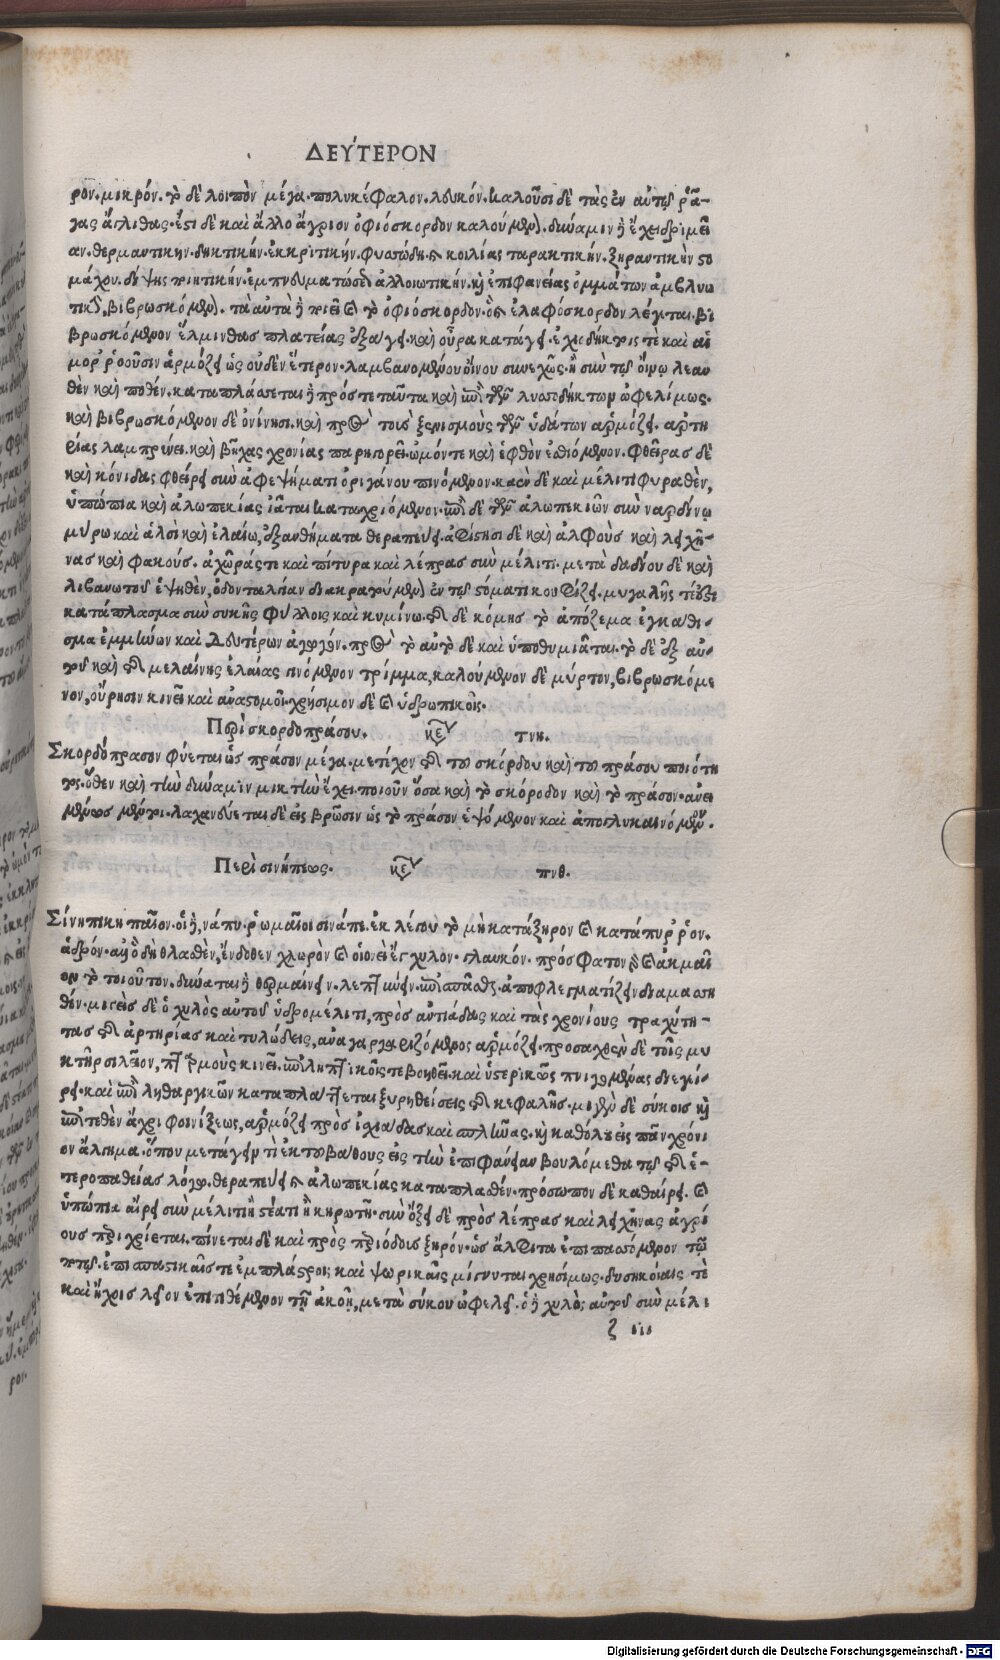 ΔΕΥΤΕΡΟΝ
ρον. μικρόν. τὸ δὲ λοιπὸν μέγα. πολυκέφαλον. λευκόν. καλοῦσι δὲ τὰς ἐν αὐτῷ ῥᾶ-
γας ἄγλιθας. ἔστι δὲ καὶ ἄλλο ἄγριον ὀφιόσκορδον καλούμενον. δύναμιν δὲ ἔχει δριμεῖ
αν. θερμαντικήν. δηκτικήν. ἐκκριτικήν. φυσώδη. καὶ κοιλίας ταρακτικήν. ξηραντικὴν στο
μάχου. δίψης ποιητικήν. ἐμπνευματώσεως ἀλλοιωτικήν. καὶ ἐπιφανείας ὀμμάτων ἀμβλυω
πικόν, βιβρωσκόμενον. τὰ αὐτὰ δὲ ποιεῖ καὶ τὸ ὀφιόσκορδον. ὃ καὶ ἐλαφόσκορδον λέγεται. βι
βρωσκόμενον ἕλμινθας πλατείας ἐξάγει. καὶ οὖρα κατάγει. ἐχιοδήκτοις τὲ καὶ αἱ
μορροοῦσιν ἁρμόζει ὡς οὐδὲν ἕτερον. λαμβανομένου οἴνου συνεχῶς. ἢ σὺν τῷ οἴνῳ λεαν
θὲν καὶ ποθέν. καταπλάσσεται δὲ πρόστε ταῦτα καὶ ἐπὶ τῶν λυσσοδήκτων ὠφελίμως.
καὶ βιβρωσκόμενον δὲ ὀνίνησι. καὶ πρὸς τοὺς ξενισμοὺς τῶν ὑδάτων ἁρμόζει. ἀρτη
ρίας λαμπρύνει. καὶ βῆχας χρονίας παρηγορεῖ. ὠμόντε καὶ ἑφθὸν ἐσθιόμενον. φθεῖρας δὲ
καὶ κόνιδας φθείρει σὺν ἀφεψήματι ὀριγάνου πινόμενον. καὲν δὲ καὶ μέλιτι φυραθὲν,
ὑπώπια καὶ ἀλωπεκίας ἰᾶται καταχριόμενον. ἐπὶ δὲ τῶν ἀλωπεκιῶν σὺν ναρδίνῳ
μύρῳ καὶ ἁλσὶ καὶ ἐλαίῳ, ἐξανθήματα θεραπεύει. ἀφίστησι δὲ καὶ ἀλφοὺς καὶ λειχῆ-
νας καὶ φακούς. ἀχῶράς τε καὶ πίτυρα καὶ λέπρας σὺν μέλιτι. μετὰ δαδίου δὲ καὶ
λιβανωτοῦ ἑψηθὲν, ὀδονταλγίαν διακρατούμενον ἐν τῷ στόματι κουφίζει. μυγαλῆς τέ ἐστι
κατάπλασμα σὺν συκῆς φύλλοις καὶ κυμίνῳ. τῆς δὲ κόμης τὸ ἀπόζεμα ἐγκαθι-
σμα ἐμμήνων καὶ δευτέρων ἀγωγόν. πρὸς τὸ αὐτὸ δὲ καὶ ὑποθυμιᾶται. τὸ δὲ ἐξ αὐ-
τοῦ καὶ τῆς μελαίνης ἐλαίας γινόμενον τρίμμα, καλούμενον δὲ μύρτον, βιβρωσκόμε
νον, οὔρησιν κινεῖ καὶ ἀναστομοῖ. χρήσιμον δὲ καὶ ὑδρωπικοῖς.
Περὶ σκορδοπράσου. κεφ τνη.
Σκορδόπρασον φύεται ὡς πράσον μέγα. μετέχον τῆς τοῦ σκόρδου καὶ τοῦ πράσου ποιότη
τος. ὅθεν καὶ τὴν δύναμιν μικτὴν ἔχει. ποιοῦν ὅσα καὶ τὸ σκόροδον καὶ τὸ πράσον. ἀνει
μένως μέντοι. λαχανεύεται δὲ εἰς βρῶσιν ὡς τὸ πράσον ἑψόμενον καὶ ἀπογλυκαινόμενον.
Περὶ σινήπεως. κεφ τνθ.
Σίνηπι κηπαῖον. οἱ δὲ, νάπυ. ῥωμαῖοι σινάπε. ἐκλέγου τὸ μὴ κατάξηρον καὶ κατάπυρρον.
ἁδρόν. αὐὸ δὴ θλασθὲν, ἔνδοθεν χλωρὸν καὶ οἱονεὶ ἔγχυλον. γλαυκόν. πρόσφατον γὰρ καὶ ἀκμαῖ
ον τὸ τοιοῦτον. δύναται δὲ θερμαίνειν. λεπτύνειν. ἐπισπᾶσθαι. ἀποφλεγματίζειν διαμασση
θέν. μιγεὶς δὲ ὁ χυλὸς αὐτοῦ ὑδρομέλιτι, πρὸς ἀντιάδας καὶ τὰς χρονίους τραχύτη-
τας τῆς ἀρτηρίας καὶ τυλώδεις, ἀναγαργαριζόμενος ἁρμόζει. προσαχθὲν δὲ τοῖς μυ
κτῆρσι λεῖον, πταρμοὺς κινεῖ. ἐπιληπτικοῖς τε βοηθεῖ. καὶ ὑστερικῶς πνιγομένας διεγεί-
ρει. καὶ ἐπὶ ληθαργικῶν καταπλάττεται ξυρηθείσης τῆς κεφαλῆς. μιγὲν δὲ σύκοις καὶ
ἐπιτεθὲν ἄχρι φοινίξεως, ἁρμόζει πρὸς ἰσχιάδας καὶ σπλῆνας. καὶ καθόλου εἰς πᾶν χρόνι
ον ἄλγημα. ὅπου μετάγειν τὶ ἐκ τοῦ βάθους εἰς τὴν ἐπιφάνειαν βουλόμεθα τῷ τῆς ἑ-
τεροπαθείας λόγῳ. θεραπεύει καὶ ἀλωπεκίας καταπλασθέν. πρόσωπον δὲ καθαίρει. καὶ
ὑπώπια αἴρει σὺν μέλιτι ἢ στέατι ἢ κηρωτῇ. σὺν ὄξει δὲ πρὸς λέπρας καὶ λειχῆνας ἀγρί
ους περιχρίεται. πίνεται δὲ καὶ πρὸς περιόδοις ξηρόν. ὡς ἄλφιτα ἐπιπασσόμενον τῷ
ποτῷ. ἐπισπαστικαῖς τε ἐμπλάστροις καὶ ψωρικαῖς μίγνυται χρησίμως. δυσηκοίαις τὲ
καὶ ἤχοις λεῖον ἐπιτιθέμενον τῇ ἀκοῇ, μετὰ σύκου ὠφελεῖ. ὁ δὲ χυλὸς αὐτοῦ σὺν μέλι
ζ iii
Digitalisierung gefördert durch die Deutsche Forschungsgemeinschaft - DFG